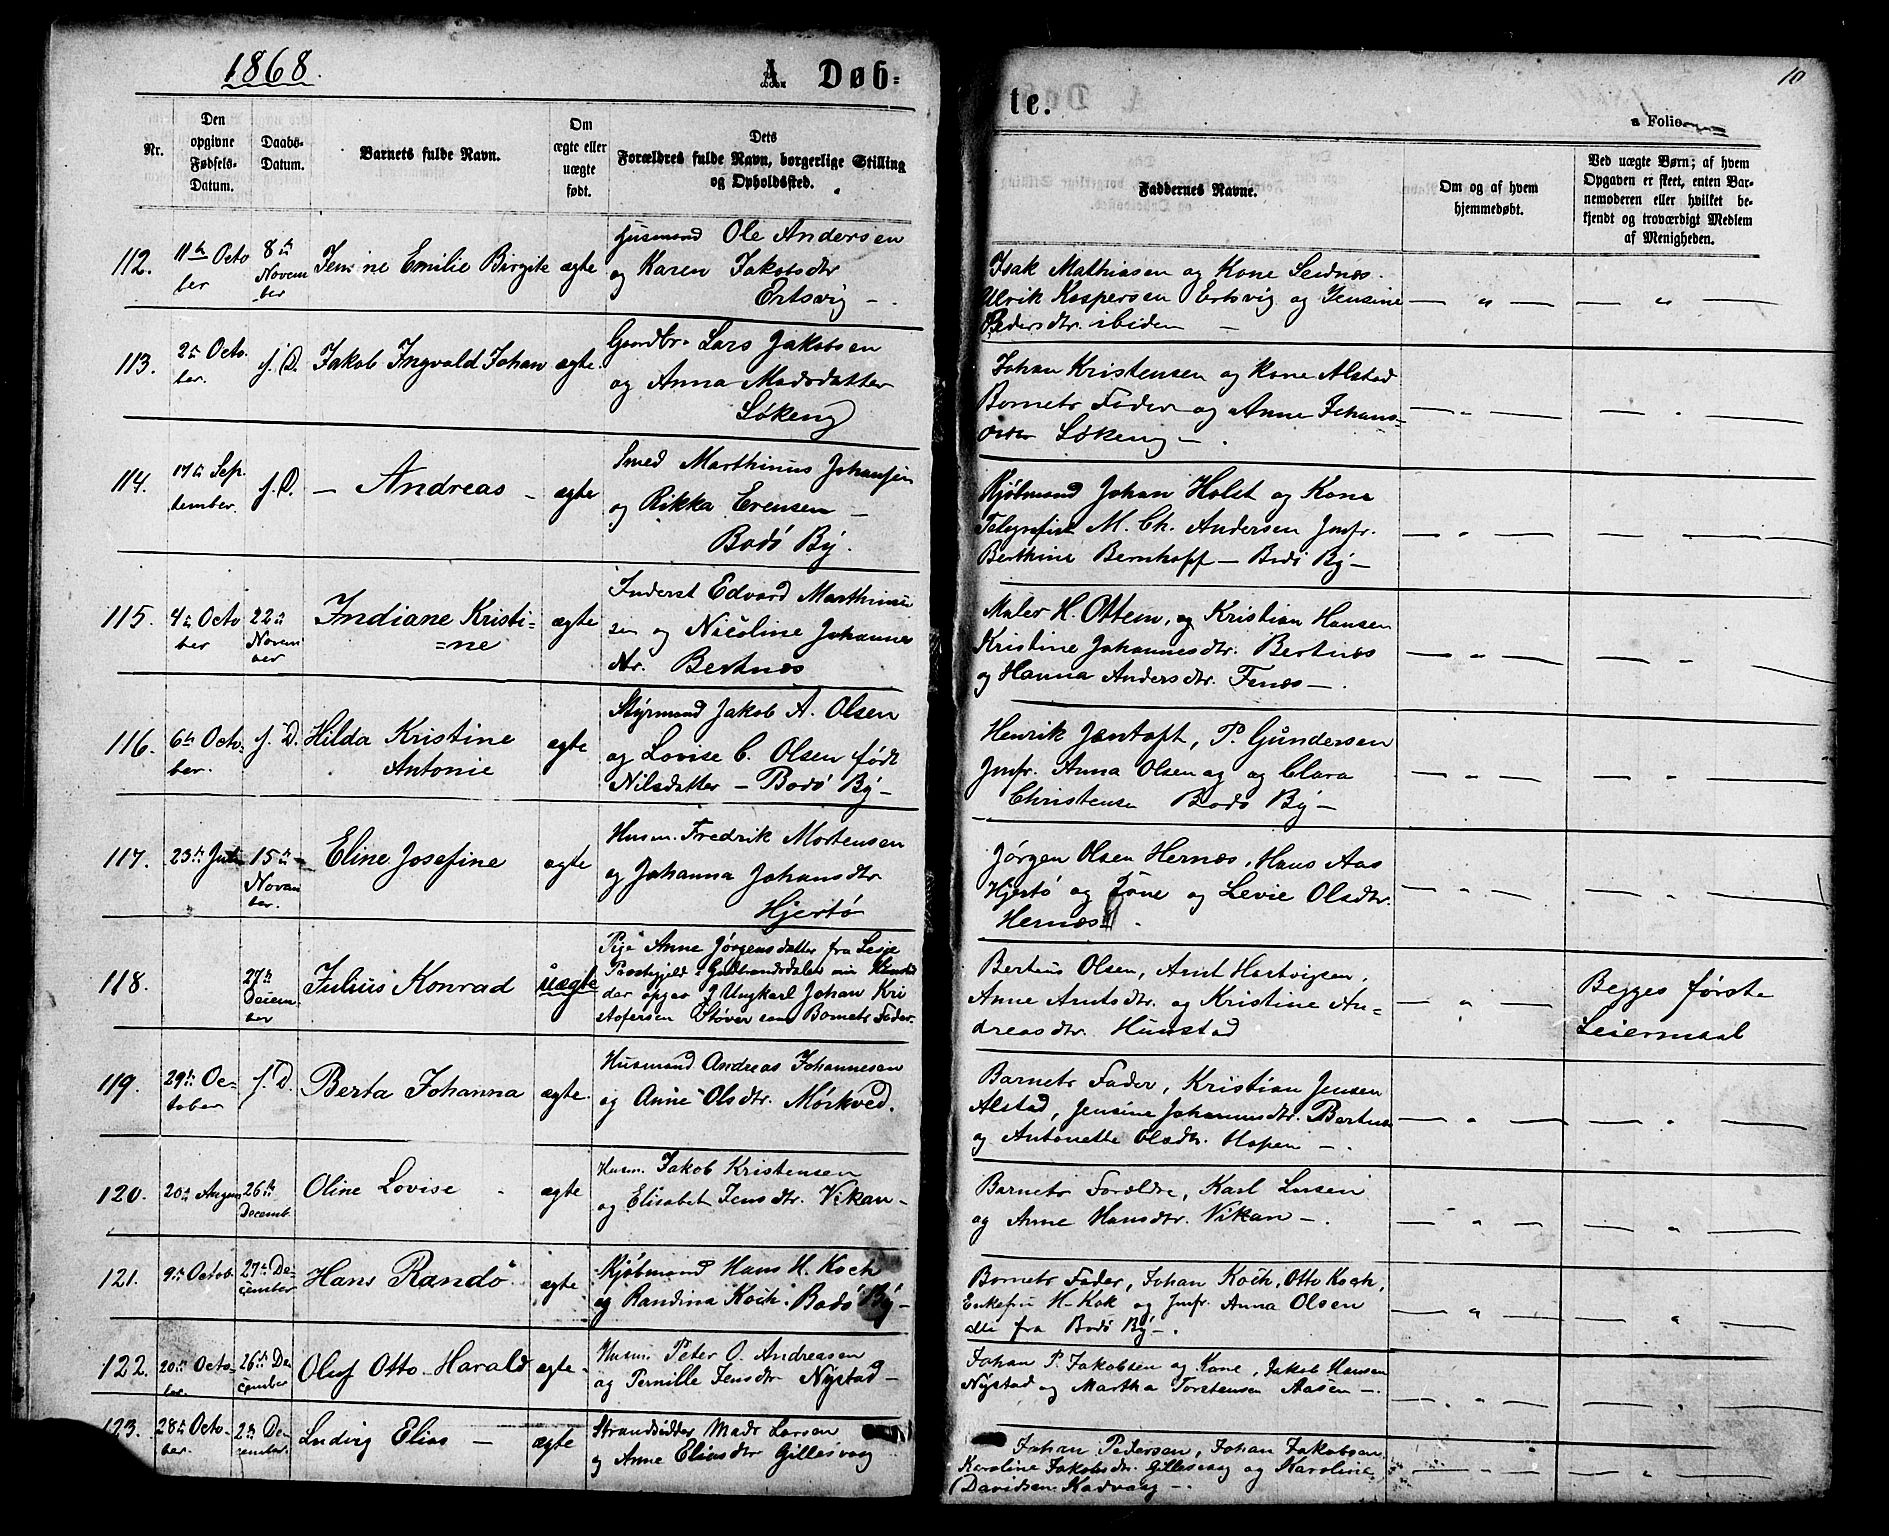 1868.
A. Døb=
te.
10
a Folio
Nr.
Den opgivne Fødsels-Datum.
Daabs-Datum.
Barnets fulde Navn.
Om ægte eller uægte født.
Dets Forældres fulde Navn, borgerlige Stilling og Opholdssted.
Faddernes Navne.
Om og af hvem hjemmedøbt.
Ved uægte Børn; af hvem Opgaven er skeet, enten Barnemoderen eller hvilket bekjendt og troværdigt Medlem af Menigheden.
112. 11te Octo ber 8de Novem ber Jensine Emilie Birgite ægte Husmand Ole Andersen
og Karen Jakobsdtr
Ertsvig -
Isak Mathiasen og Kone Seines.
Ulrik Kaspersen Ertsvig og Jensine
Pedersdtr. ibiden -
113. 2den Octo. ber. f. D. Jakob Ingvald Johan ægte. Gaardbr. Lars Jakobsen
og Anna Madsdatter
Løkeng
Johan Kristensen og Kone Alstad
Barnets Fader og Anne Johans=
datter Løkeng -.
114. 17de Sep tember. f. D. - Andreas - ægte Smed Marthinus Johansen
og Rikka Erensen -
Bodø By.
Kjøbmand Johan Holst og Kone
Telegrafist M. Ch. Andersen Jmfr.
Berthine Bernhoff - Bodø By -
115. 4de Octo ber 22de Novem ber Indiane Kristi-
=ne ægte Inderst Edvard Marthinu
sen og Nicoline Johannes
dtr. Bertnes
Maler H. Ottem, og Kristian Hansen
Kristine Johannesdtr. Bertnes
og Hanna Andersdtr. Fenes -.
116. 6te Octo- ber. f. D. Hilda Kristine
Antonie ægte Styrmand Jakob A. Olsen
og Lovise C. Olsen født
Nilsdatter - Bodø By -
Henrik Jentoft, P. Gundersen
Jmfr. Anna Olsen og og Clara
Christensen Bodø By -
117. 23de Juli 15de Novem ber. Eline Josefine ægte Husm. Fredrik Mortensen
og Johanna Johansdtr
Hjertø
Jørgen Olsen Hernes, Hans Aas
Hjertø og Kone og Levie Olsdtr.
Hernes.
118. 27de Decem ber Julius Konrad uægte Pige Anne Jørgensdatter fra Lesje
Præstegjeld i Gudbrandsdalen nu Hunstad
der opgav Ungkarl Johan Kri
stofersen Støver som Barnets Fader.
Berteus Olsen, Arnt Hartvigsen,
Anne Arntsdtr. og Kristine An=
dreasdtr. Hunstad
Begges første
Leiermaal
119. 29de Oc- tober f. D. Berta Johanna ægte. Husmand Andreas Johannesen
og Anne Olsdtr. Mørkved.
Barnets Fader, Kristian Jensen
Alstad, Jensine Johannesdtr. Bertnes
og Antonette Olsdtr. Hopen -.
120. 20de August 26de Decemb. Oline Lovise ægte Husm. Jakob Kristensen
og Elisabet Jensdtr. Vikan -
Barnets Forældre, Karl Larsen
og Anne Hansdtr. Vikan -.
121. 9de Octob. 27de De- cember Hans Randø ægte Kjøbmand Hans H. Koch
og Randina Koch. Bodø By -
Barnets Fader, Johan Koch, Otto Koch,
Enkefru H. Kok og Jmfr. Anna Olsen
alle fra Bodø By -.
122. 20de Octo- ber 26de De cember Oluf Otto Harald ægte Husm. Peter O. Andreasen
og Pernille Jensdtr Nystad -
Johan P. Jakobsen og Kone, Jakob Hansen
Nystad og Martha Torstensen Aasen -.
123. 28de Octo- ber 2den De- cember. Ludvig Elias - ægte Strandsidder Mads Larsen
og Anne Eliasdtr Gillesvaag
Johan Pedersen, Johan Jakobsen
Karoline Jakobsdtr. Gillesvaag og Karoline
Davidsen Kadvaag -.